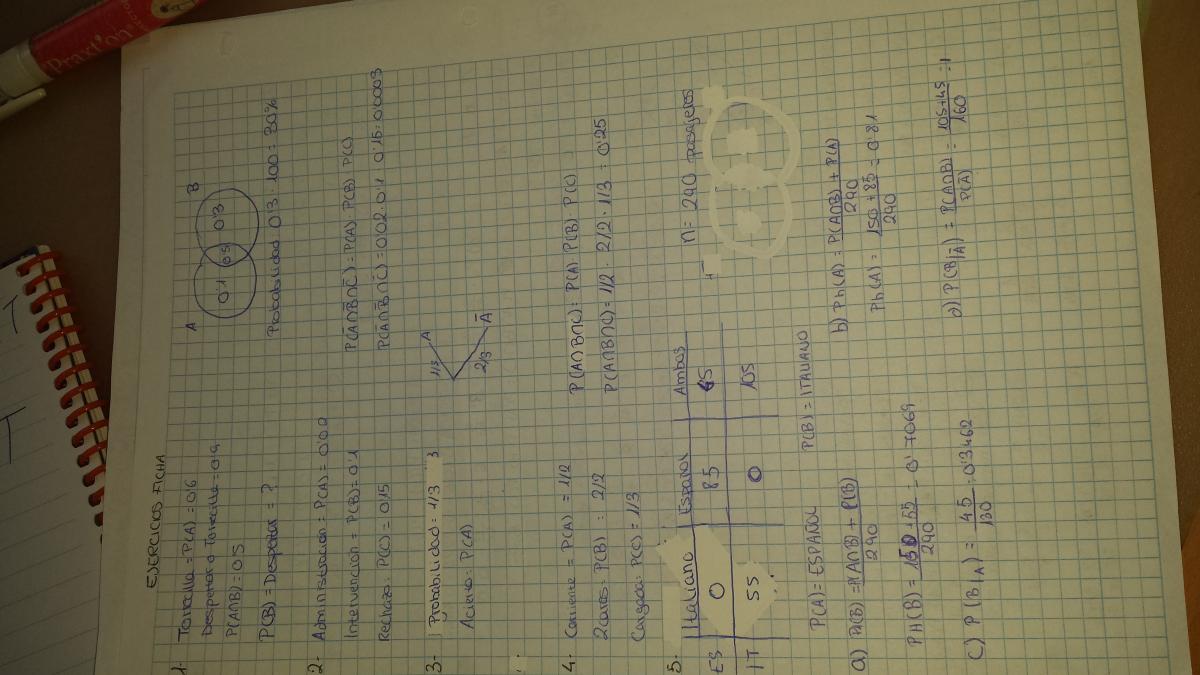 EJERCICIOS FICHA
1. Tarracilla = P(A) = 0'6
P(A∩B) = 0'5
P(B) = Despertar = ?
A B
0'1 0'5 0'3
Probabilidad 0'3 · 100 = 30%
2- Administración = P(A) = 0'02
Intervención = P(B) = 0'1
Rechazo = P(C) = 0'15
P(A∩B∩C) = P(A) · P(B) · P(C)
P(A∩B∩C) = 0'02 · 0'1 · 0'15 = 0'0003
3- Probabilidad = 1/3
Acierto = P(A)
1/3 A
2/3 Ā
4. Corriente = P(A) = 1/2
2 caras = P(B) = 2/2
Cargada = P(C) = 1/3
P(A∩B∩C) = P(A) · P(B) · P(C)
P(A∩B∩C) = 1/2 · 2/2 · 1/3 = 0'25
5. Italiano Español Ambos
ES 0 85 45
IT 55 0 105
n = 290 pasajeros
P(A) = ESPAÑOL P(B) = ITALIANO
a) Ph(B) = P(A∩B) + P(B) / 290
PH(B) = 150 + 55 / 290 = 0'7069
b) Ph(A) = P(A∩B) + P(A) / 290
Ph(A) = 150 + 85 / 290 = 0'81
c) P(B|A) = 45 / 130 = 0'3462
d) P(B|Ā) = P(A∩B) / P(A) = 105+45 / 160 = 1